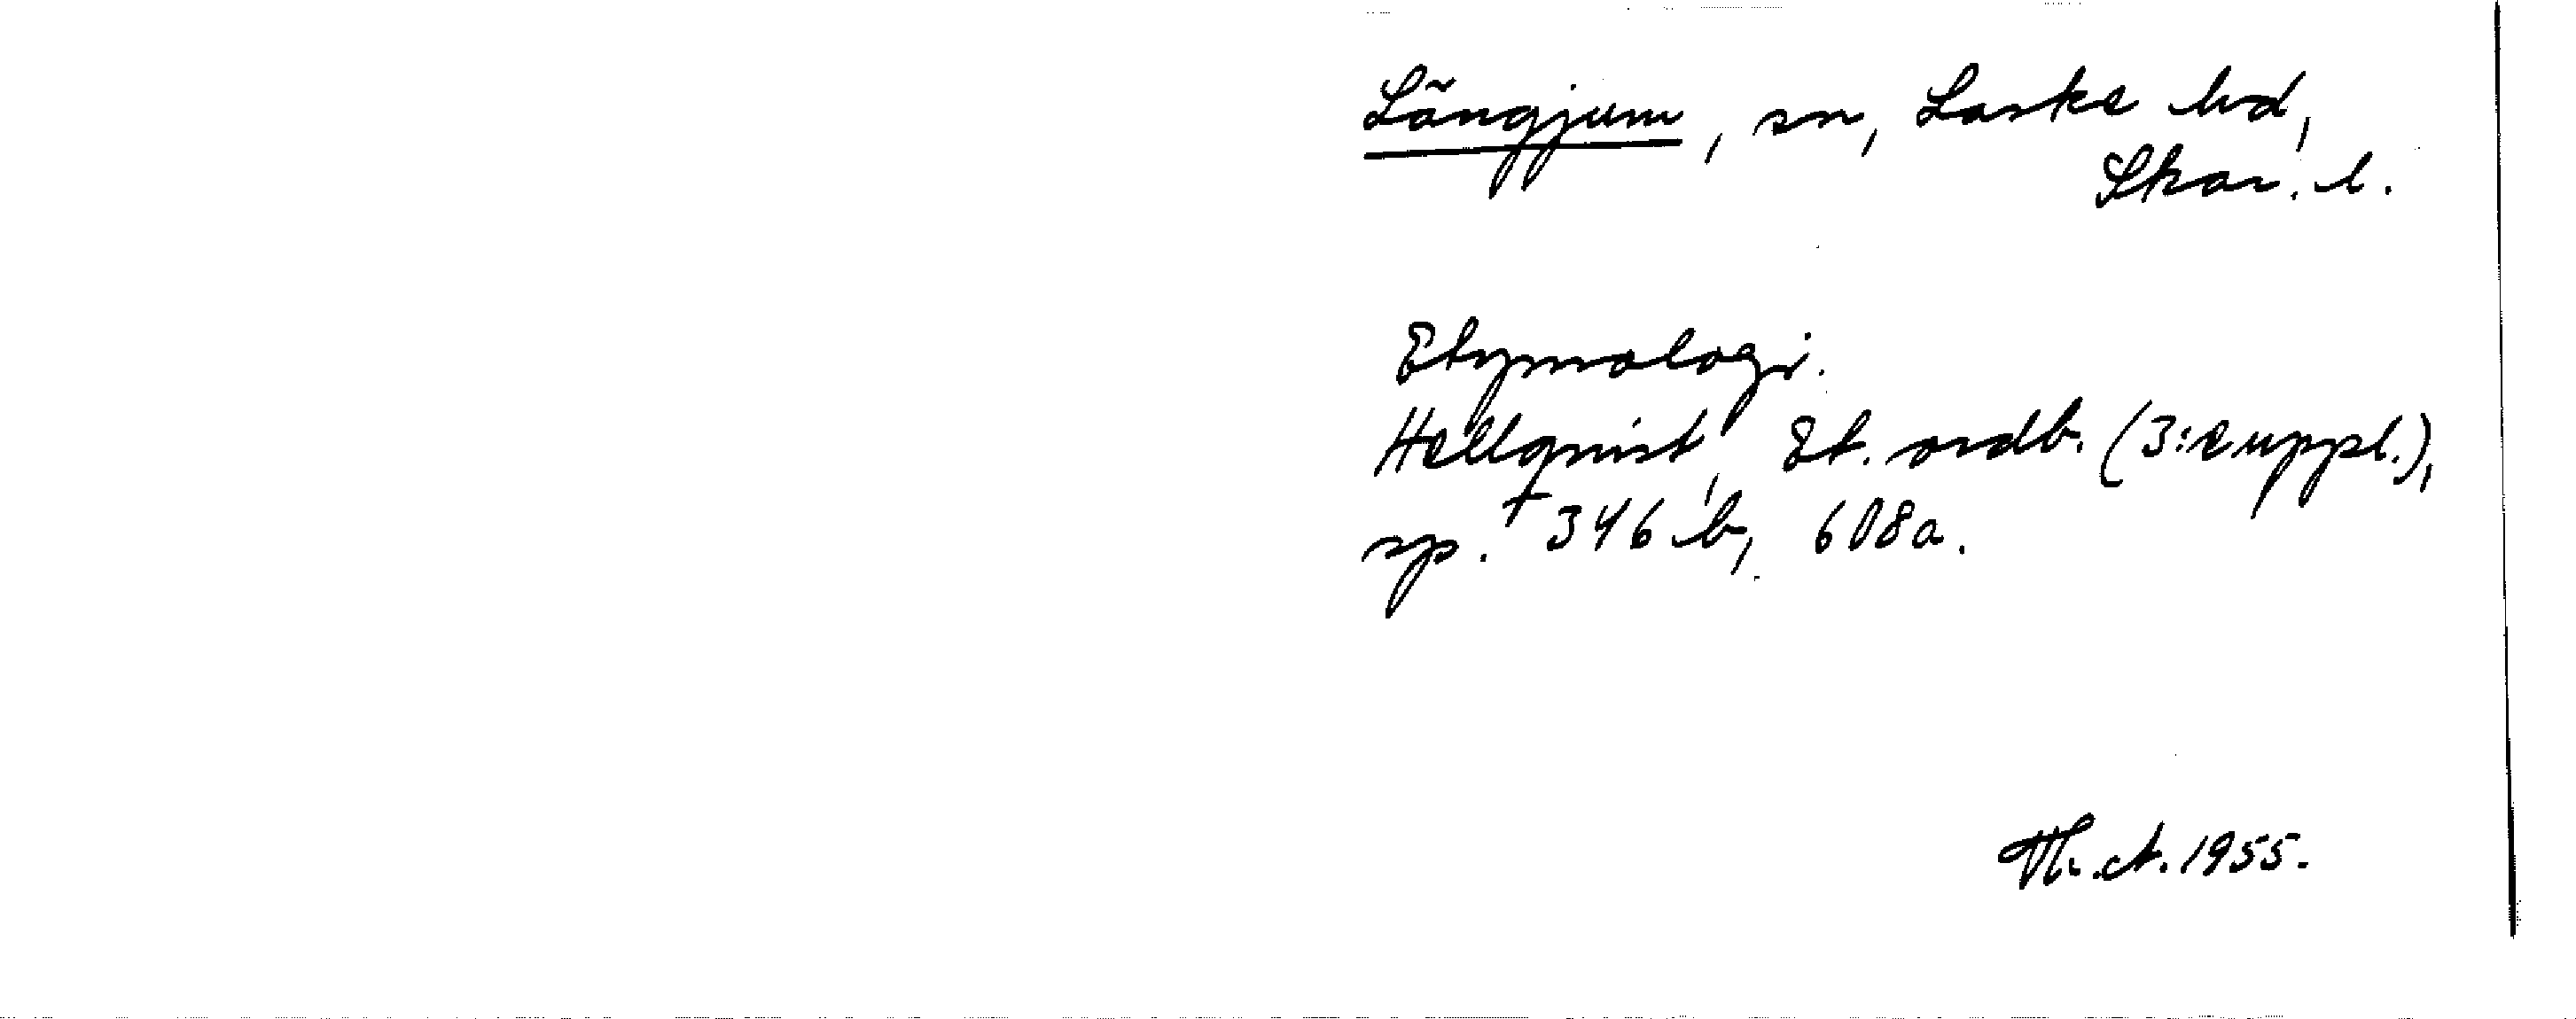 Långjum, sn, Laske hd,
Skar. l.
Etymologi.
Hellquist, Et. ordb. (3:e uppl.),
sp. 346 b, 608 a.
Th. A. 1955.